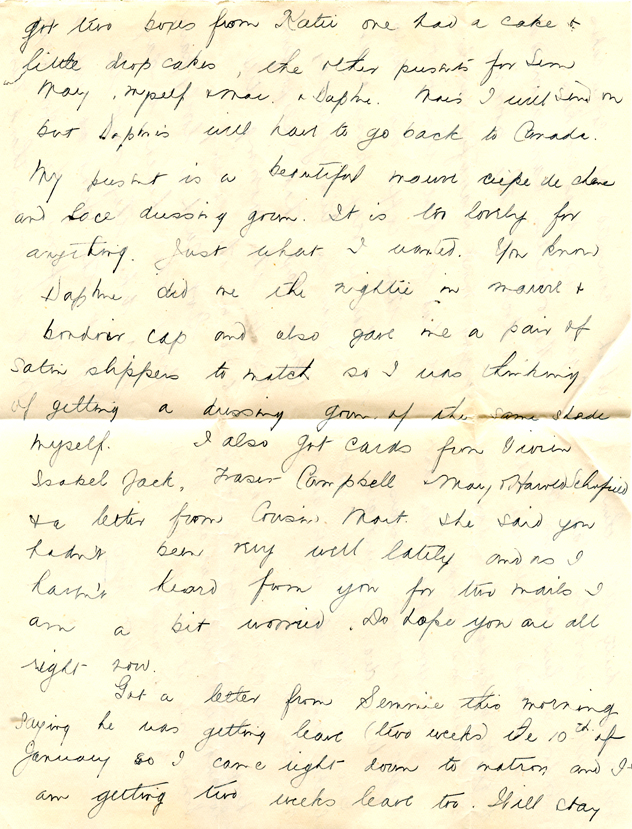 got two boxes from Katie one had a cake &
little drop cakes, the other presents for Sem
May, myself & Mac. & Daphne. Macs I will send on
but Daphnes will have to go back to Canada.
My present is a beautiful mauve crepe de chene
and lace dressing gown. It is too lovely for
anything. Just what I wanted. You know
Daphne did me the nightie in mauve &
boudoir cap and also gave me a pair of
satin slippers to match so I was thinking
of getting a dressing gown of the same shade
myself. I also got cards from Vivien
Isabel Jack, Fraser Campbell May & Harold
& a letter from Cousin Mart. She said you
hadn't been very well lately and as I
hasn't heard from you for two mails I
am a bit worried. Do hope you are all
right now.
Got a letter from Semmie this morning
saying he was getting leave (two weeks) the 10th of
January so I came right down to matron and I
am getting two weeks leave too. Will stay